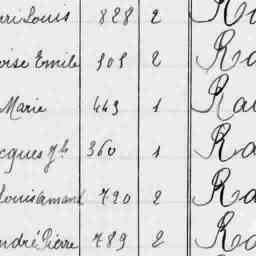 ri Louis 828 2 R
oise Emile 505 2 Ra
Marie 443 1 Rau
cques Jh 360 1 Ra
Louis Armand 720 2 Ra
ndré Pierre 789 2 Ra